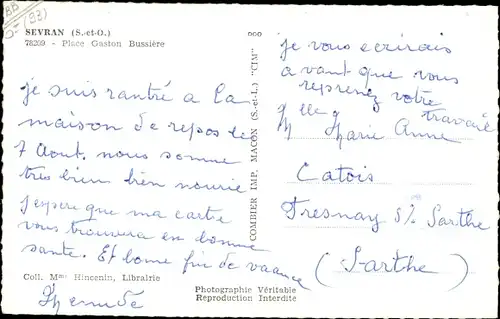 BB
(93)
SEVRAN (S.-et-O.)
78209 - Place Gaston Bussière
je suis rantré a la
maison de repos le
7 Aout. nous somme
tres bien bien nourie
j'espere que ma carte
vous trouvera en bonne
sante. Et bonne fin de vacance
Coll. Mme Hincenin, Librairie
COMBIER IMP. MACON (S.-et-L.) "CIM"
je vous ecrirais
avant que vous
reprenez votre
travaie
Mlle
Marie Anne
Catois
Fresnay s/ Sarthe
(Sarthe)
Photographie Véritable
Reproduction Interdite